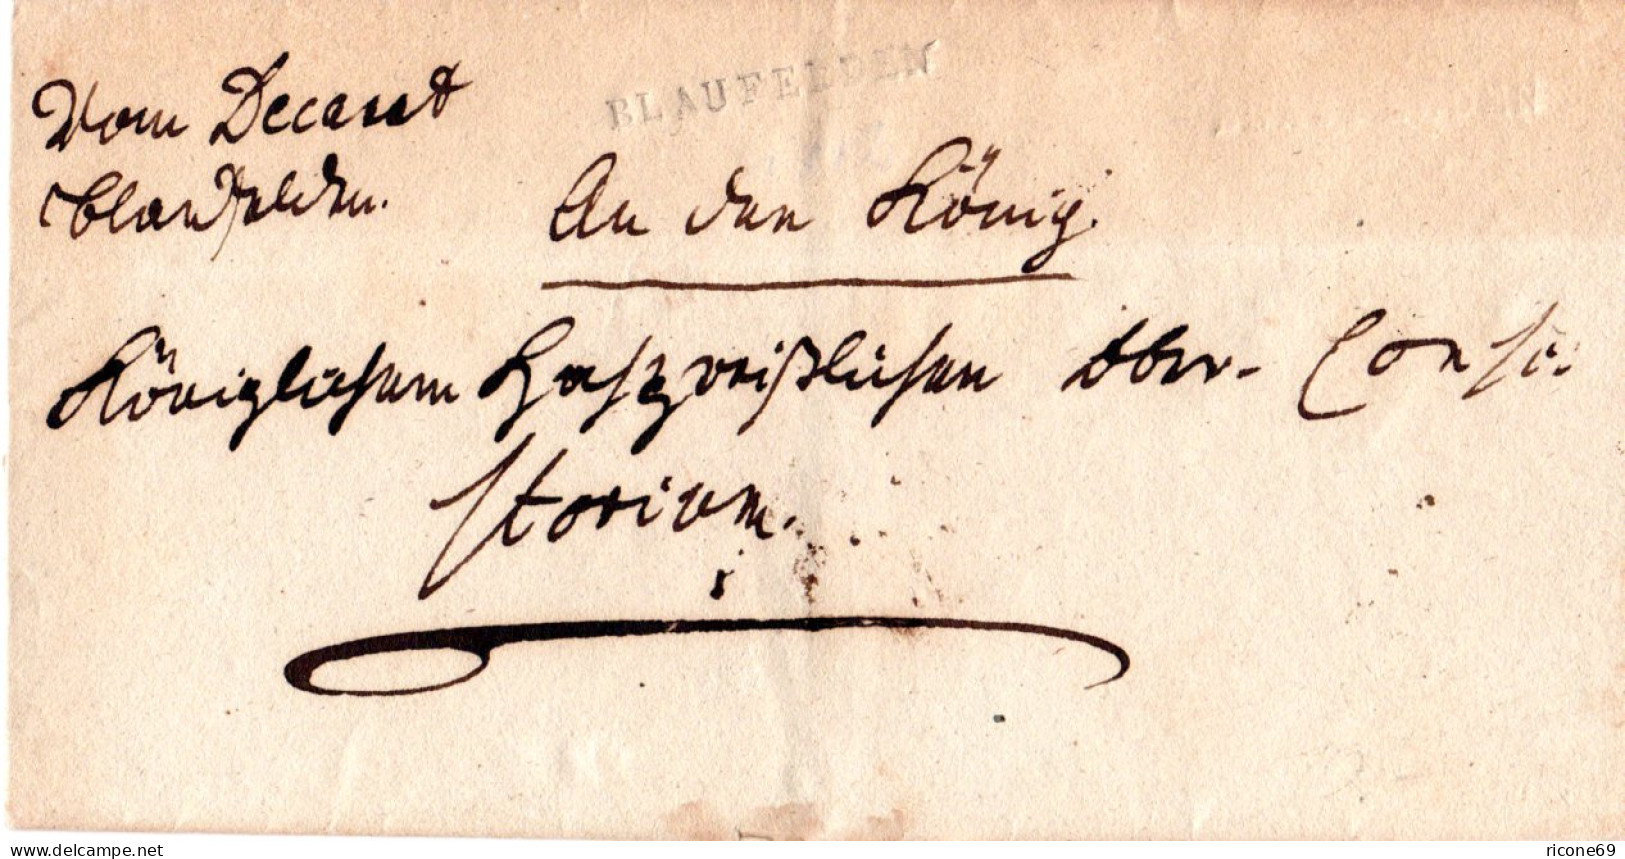 Vom Decanat
Blaufelden.
BLAUFELDEN
An den König.
Königlichem Hochpreißlichen Ober-Consi-
storium.
www.delcampe.net
ricone69